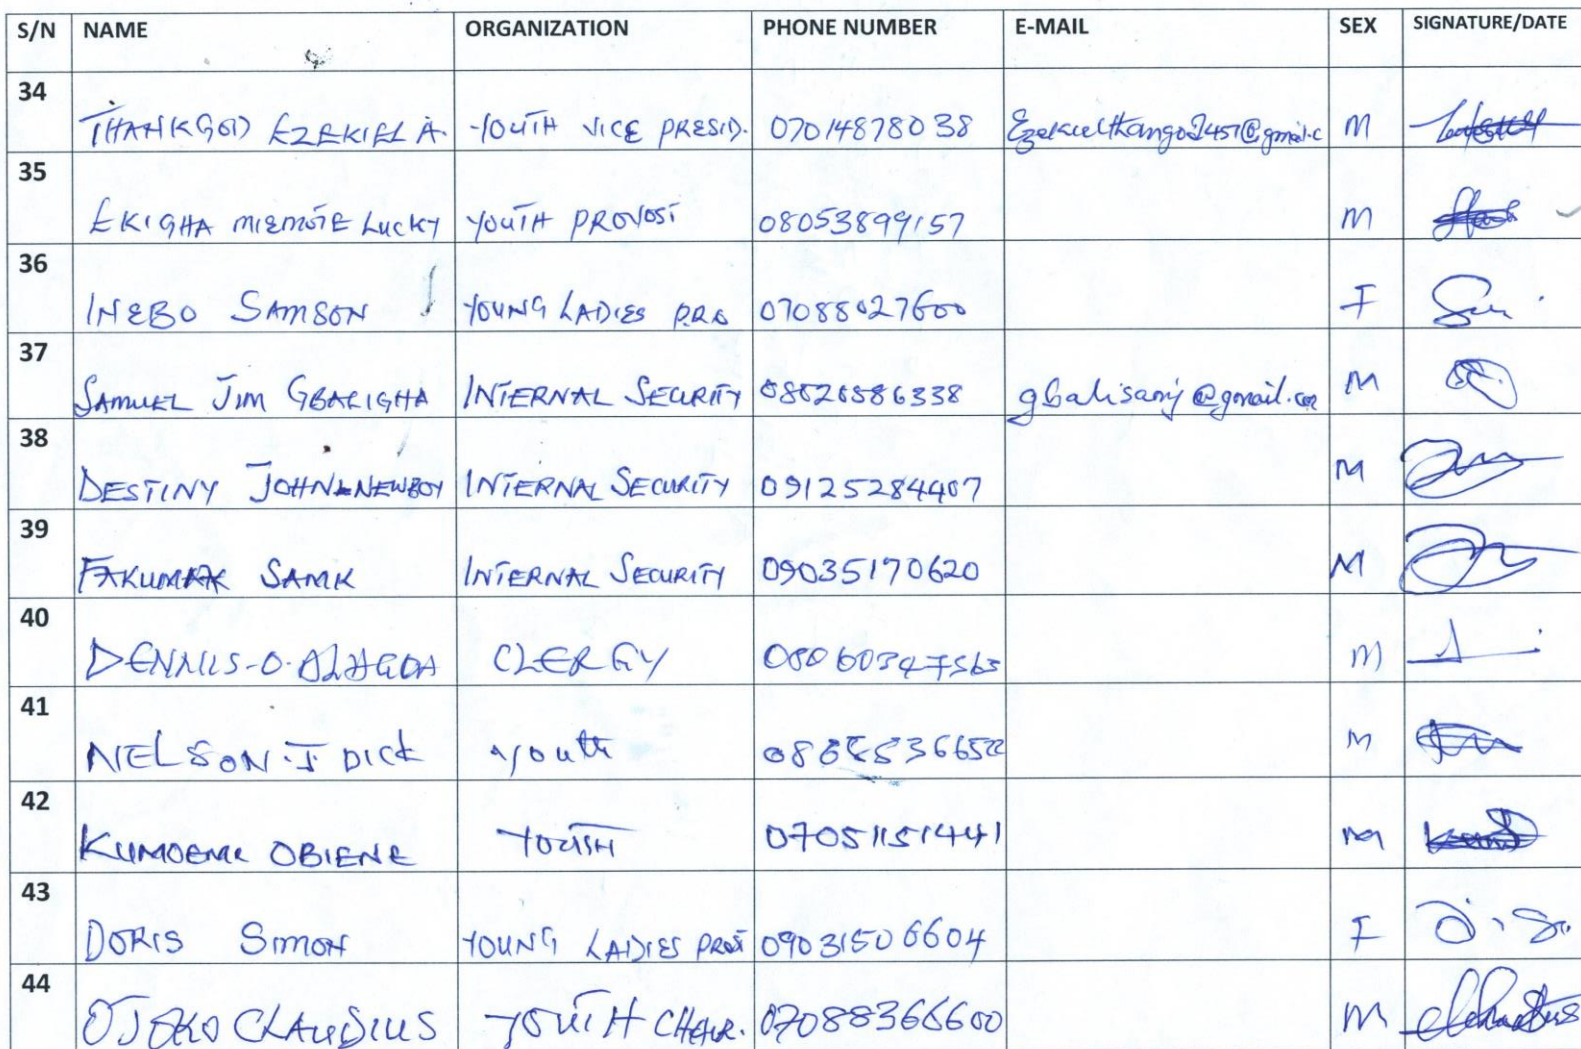 S/N NAME ORGANIZATION PHONE NUMBER E-MAIL SEX SIGNATURE/DATE
34 THANKGOD EZEKIEL A. YOUTH VICE PRESID. 07014878038 M
35 EKIGHA MIEMOTE LUCKY YOUTH PROVOST 08053899157 M
36 INEBO SAMSON YOUNG LADIES PRO 07088027600 F
37 SAMUEL JIM GBALIGHA INTERNAL SECURITY 08026586338 gbalisamj@gmail.com M
38 DESTINY JOHN NEWBOY INTERNAL SECURITY 09125284407 M
39 SAMK INTERNAL SECURITY 09035170620 M
40 DENNIS-O-ALAGOA CLERGY 08060347563 M
41 NELSON.J DICK youth M
42 OBIENE YOUTH 07051151441 M
43 DORIS SIMON YOUNG LADIES PROV 09031506604 F
44 CLAUDIUS YOUTH CHAIR. 07088366600 M